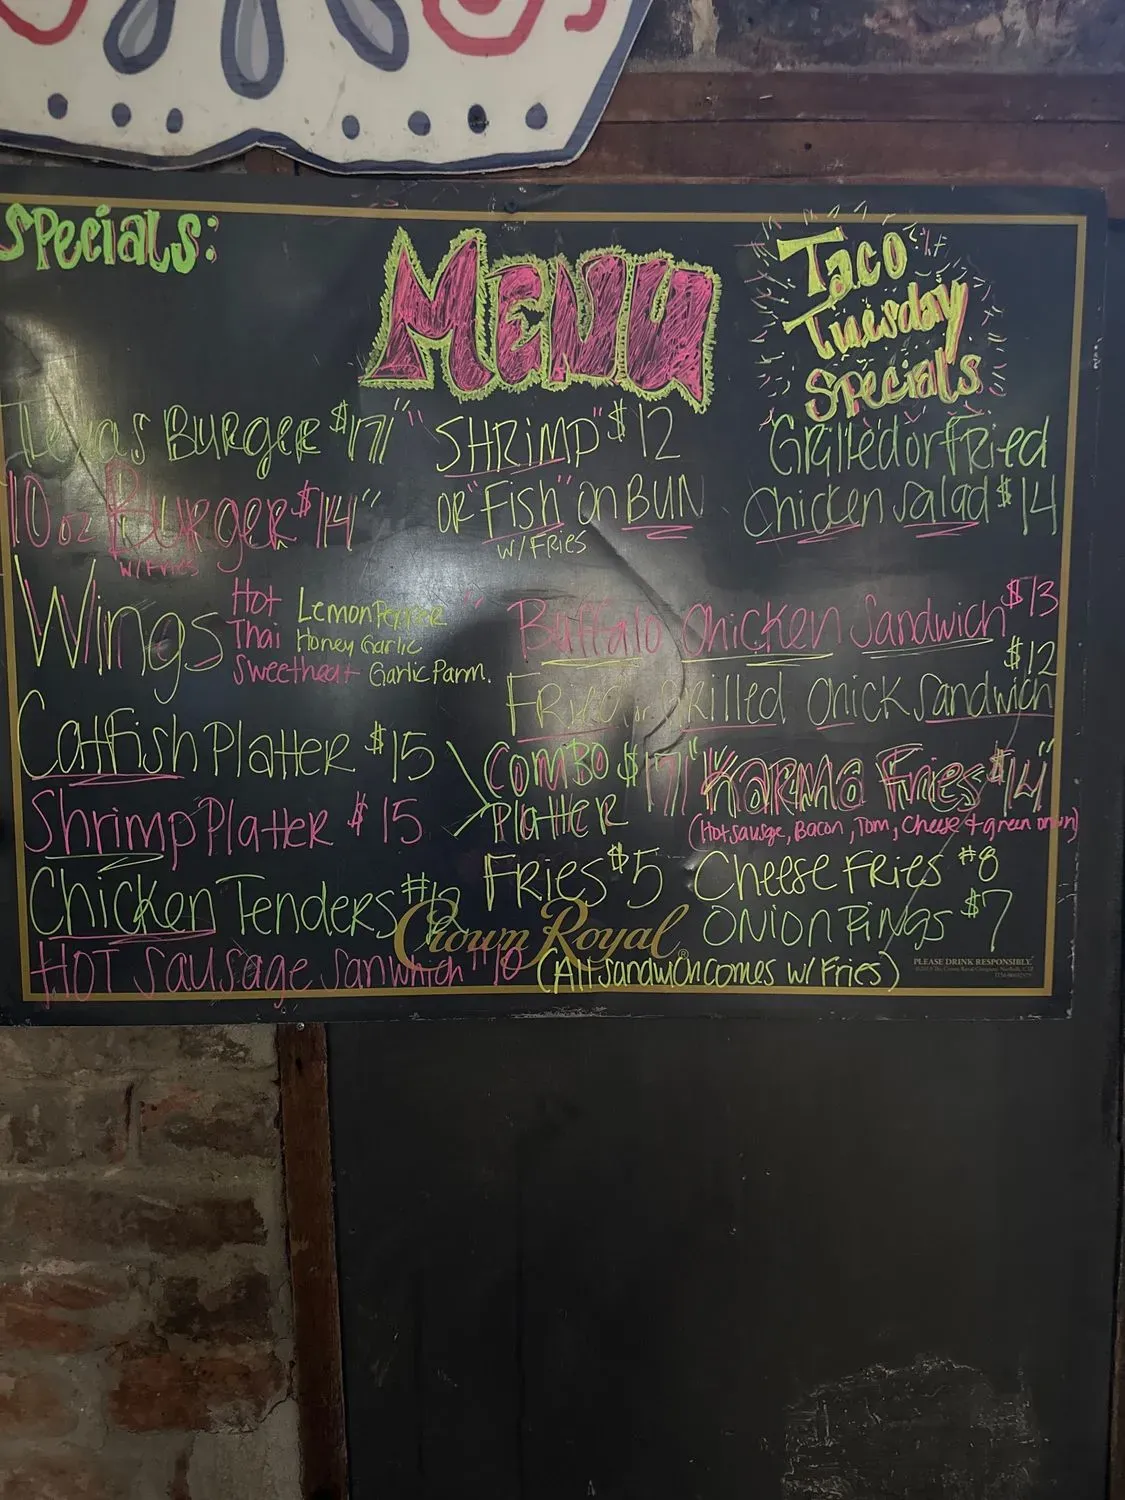 Specials:
MENU
Taco
Tuesday
Specials
Texas Burger $17
10 oz Burger $14
w/Fries
"SHRIMP" $12
OR "Fish" on BUN
w/Fries
Grilled or Fried
Chicken Salad $14
Wings
Hot Lemon Pepper
Thai Honey Garlic
Sweetheat Garlic Parm.
Buffalo Chicken Sandwich $13
Fried or Grilled Chick Sandwich $12
Catfish Platter $15
Shrimp Platter $15
Combo $17
Platter
"Karma Fries $14"
(Hot sausage, Bacon, Tom, Cheese + green onion)
Chicken Tenders
Fries $5
Cheese Fries #8
Onion Rings $7
Hot Sausage Sanwhich
Crown Royal®
(All sandwich comes w/ Fries)
PLEASE DRINK RESPONSIBLY.